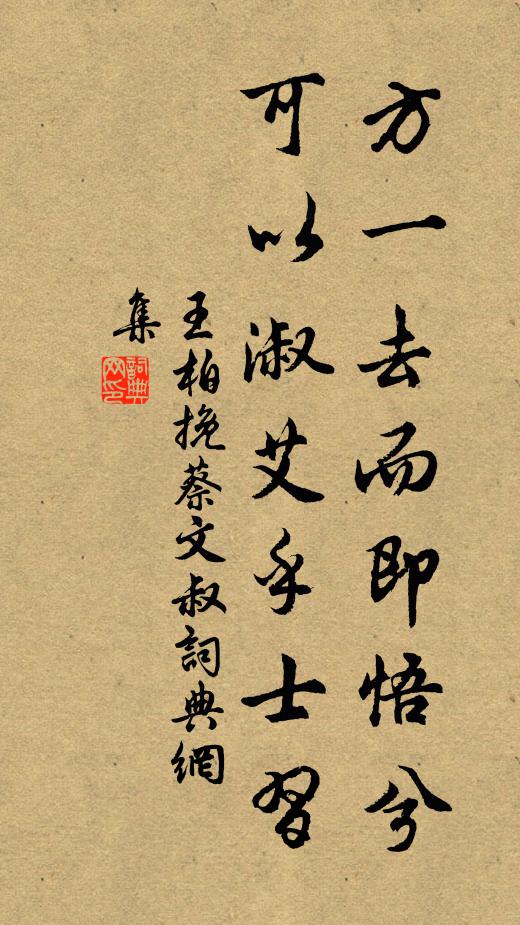 方一去而即悟兮
可以淑艾乎士習
王柏挽蔡文叔詞典網
集
詞典
网印